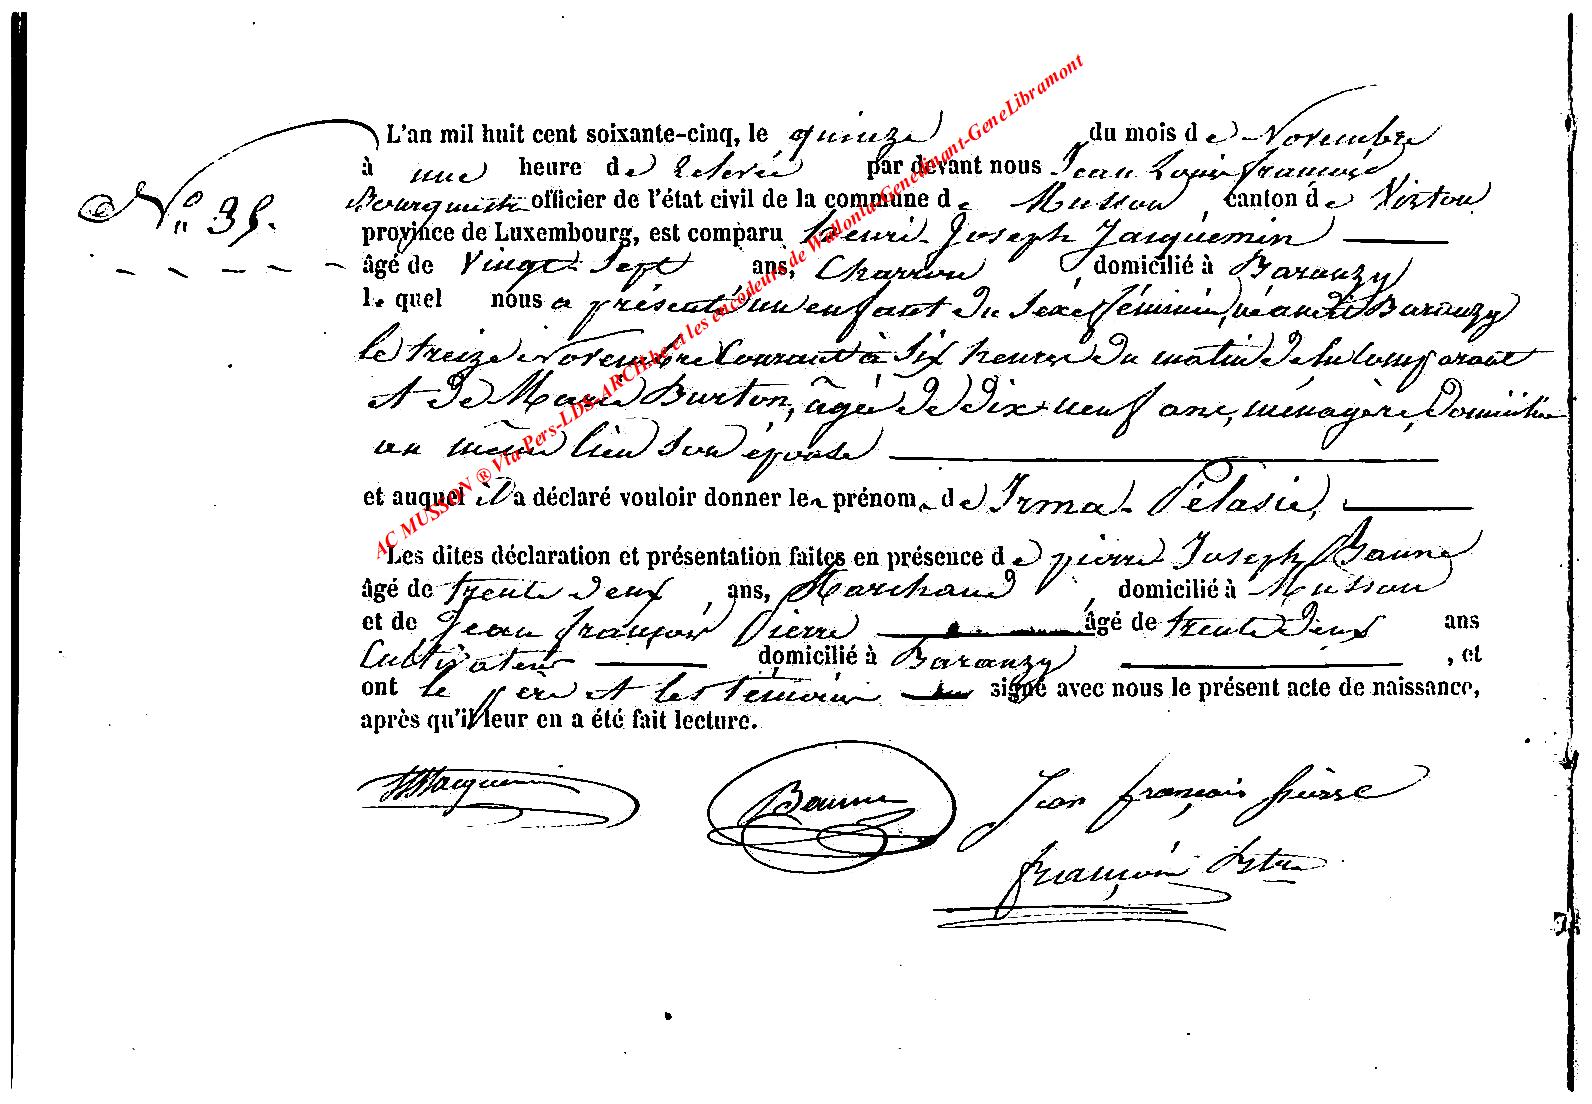 L'an mil huit cent soixante-cinq, le quinze du mois de Novembre
à une heure de relevée par devant nous Jean Louis françois
N° 35.
officier de l'état civil de la commune de Musson, canton de Virton
province de Luxembourg, est comparu Henri Joseph Jacquemin
âgé de Vingt Sept ans, Charron domicilié à Baranzy
le quel nous a présenté un enfant du sexe féminin, né audit Baranzy
le treize Novembre Courant à Six heures du matin de lui comparant
et de Marie Burton, âgée de dix neuf ans, ménagère, Domiciliée
au même lieu son épouse
et auquel il a déclaré vouloir donner les prénoms de Irma Pélasie,
Les dites déclaration et présentation faites en présence de pierre Joseph Baune
âgé de trente deux ans, Marchand, domicilié à Musson
et de Jean françois Pierre âgé de trente deux ans
Cultivateur domicilié à Baranzy, et
ont le père et les témoins signé avec nous le présent acte de naissance,
après qu'il leur en a été fait lecture.
HJJacquemin Baune Jean françois pierre
françois
AC MUSSON ® Via Pers-LDS-ARCH.be et les encodeurs de Wallonia-Genedinant-GeneLibramont